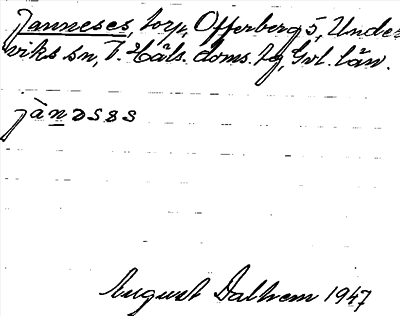 Janneses, torp, Offerberg 5, Under
viks sn, V. Häls. doms. tg, Gvl. län.
jànəsəs
August Dalhem 1947